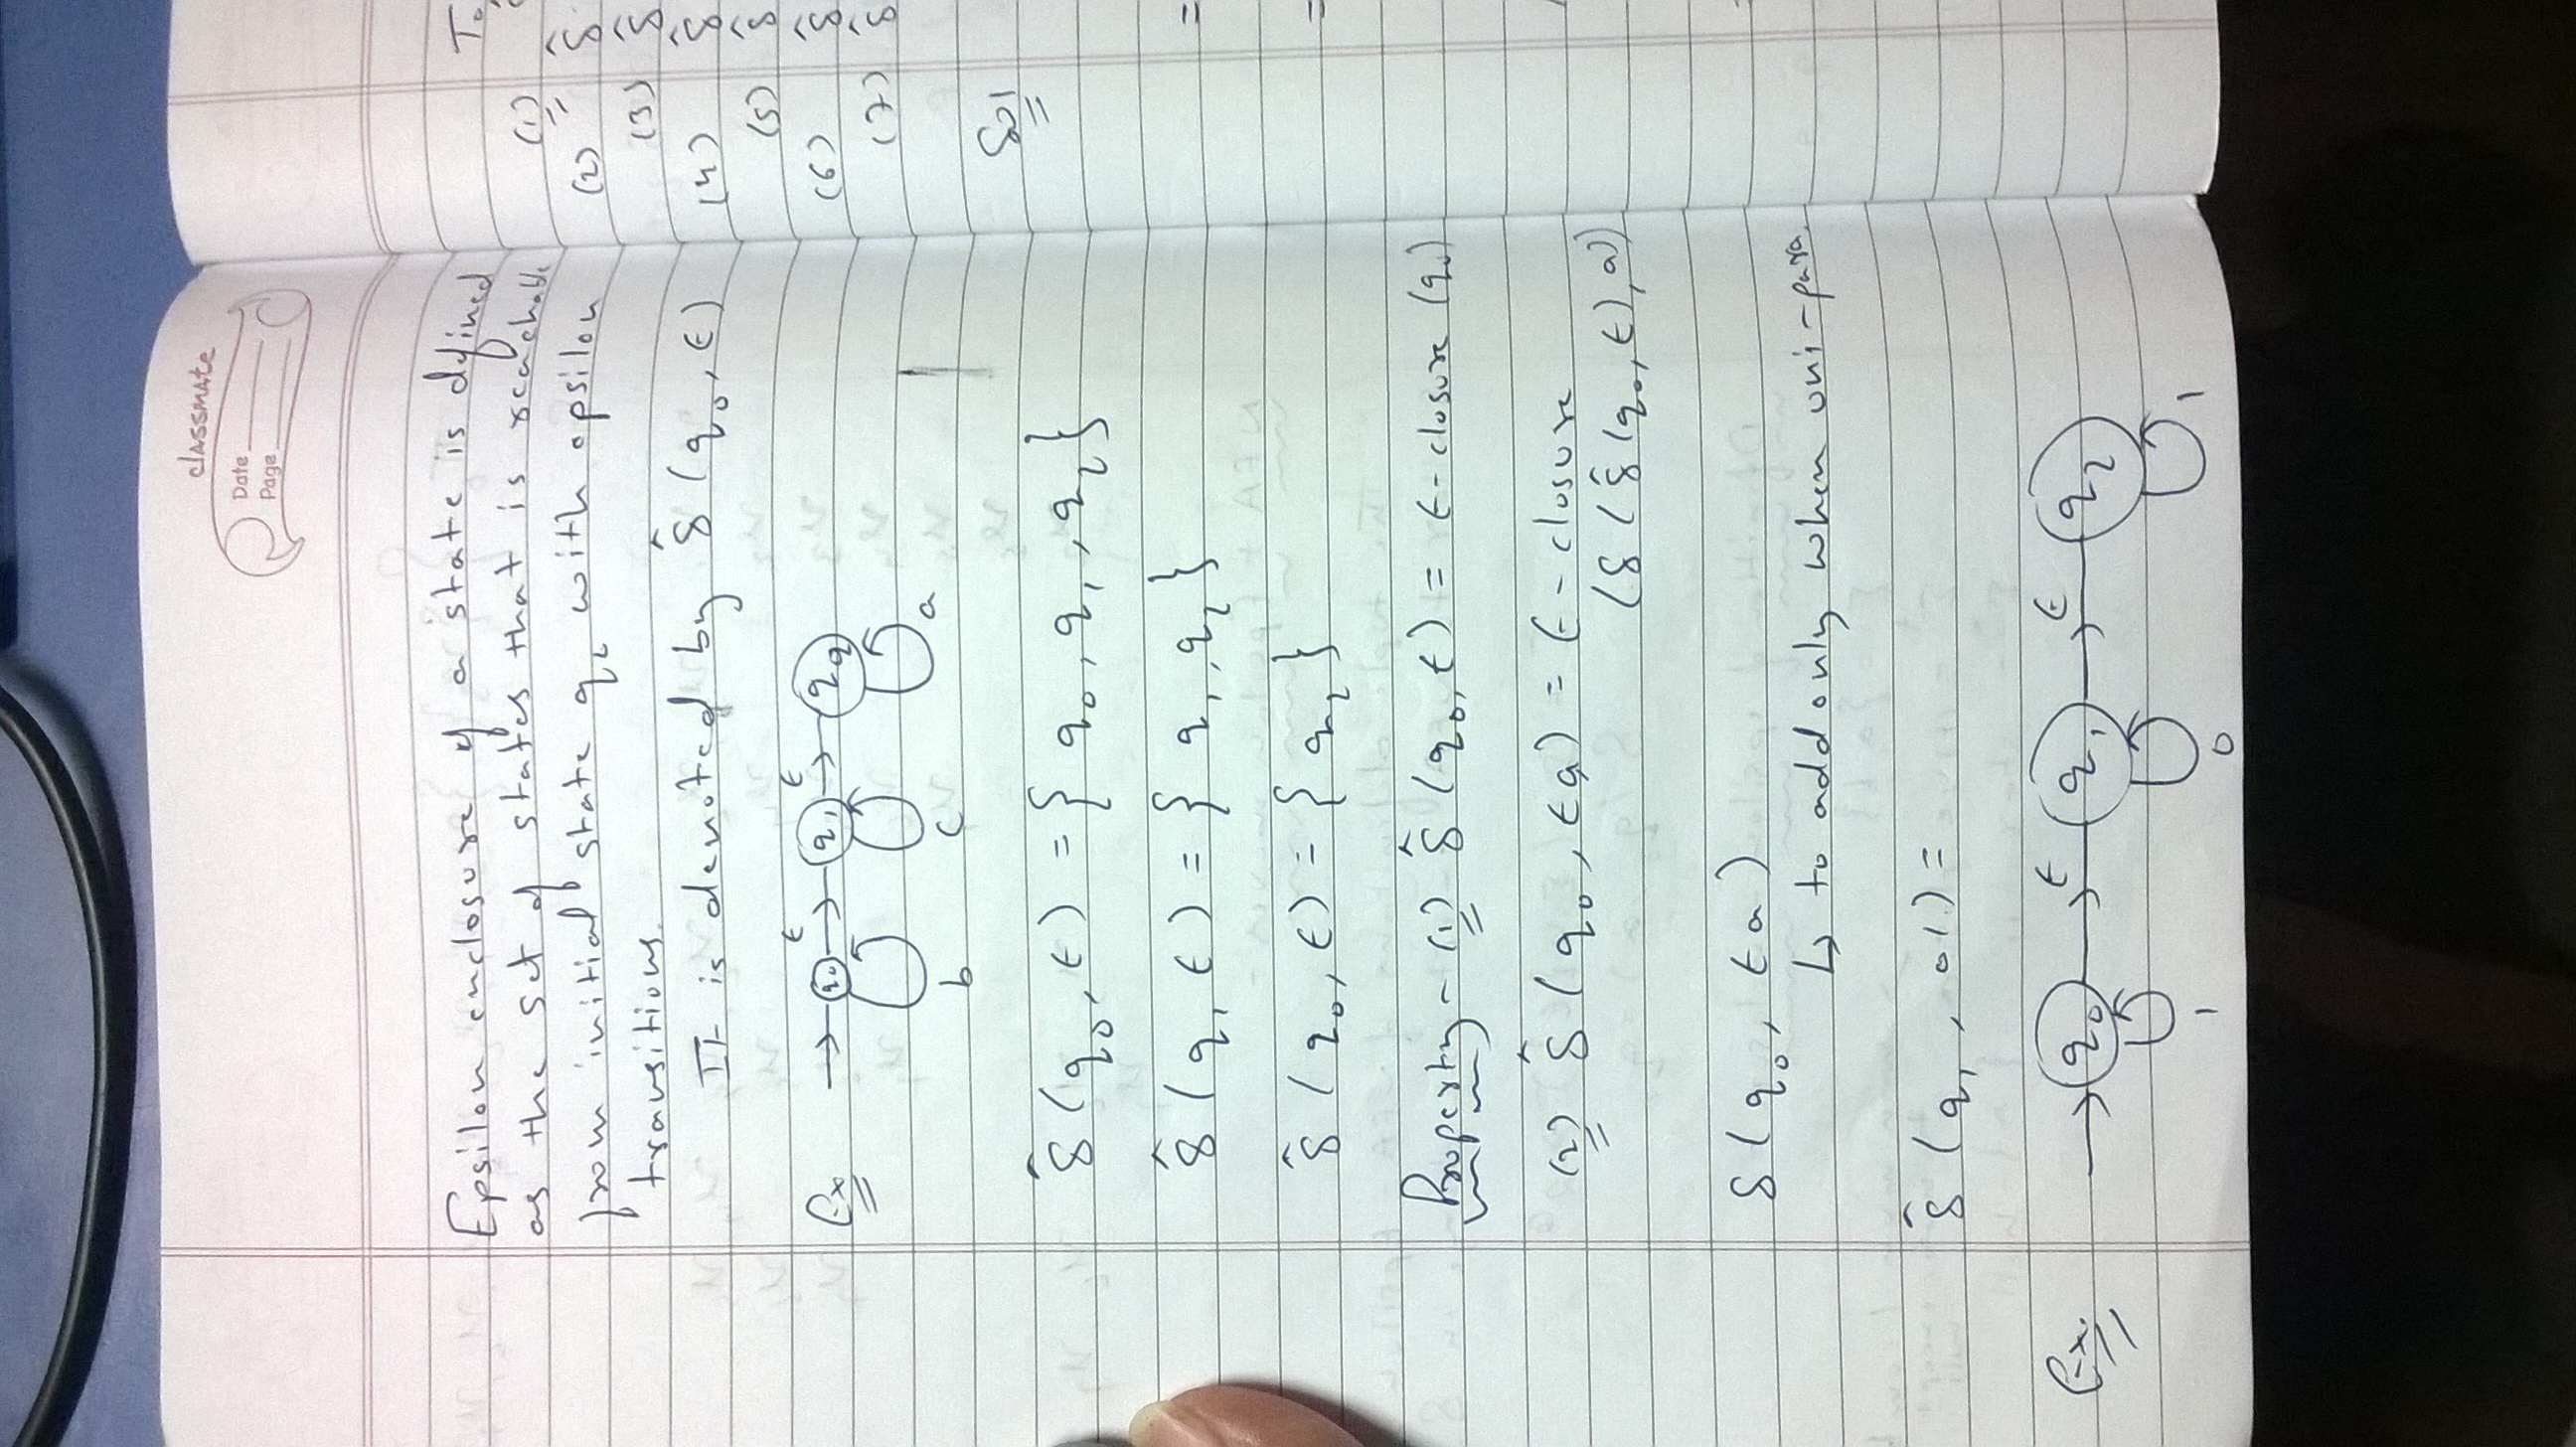 classmate
Date
Page
Epsilon enclosure of a state is defined
as the set of states that is reachable
from initial state q with epsilon
transitions.
It is denoted by δ̂ (q₀, ε)
Ex
ε ε
q₀ q₁ q₂
b c a
δ̂ (q₀, ε) = { q₀, q₁, q₂}
δ̂ (q₁ ε) = { q₁, q₂ }
δ̂ (q₀, ε) = { q₂ }
Property - (1) δ̂ (q₀, ε) = ε-closure (q₀)
(2) δ̂ (q₀, εa) = ε-closure
(δ (δ̂ (q₀, ε), a))
δ (q₀, εa)
↳ to add only when uni-para.
δ̂ (q₁, 01) =
Ex.
ε ε
q₀ q₁ q₂
1 0 1
(1)
(2) δ̂
(3) δ̂
(4) δ̂
(5) δ̂
(6) δ̂
(7) δ̂
Sol
=
=